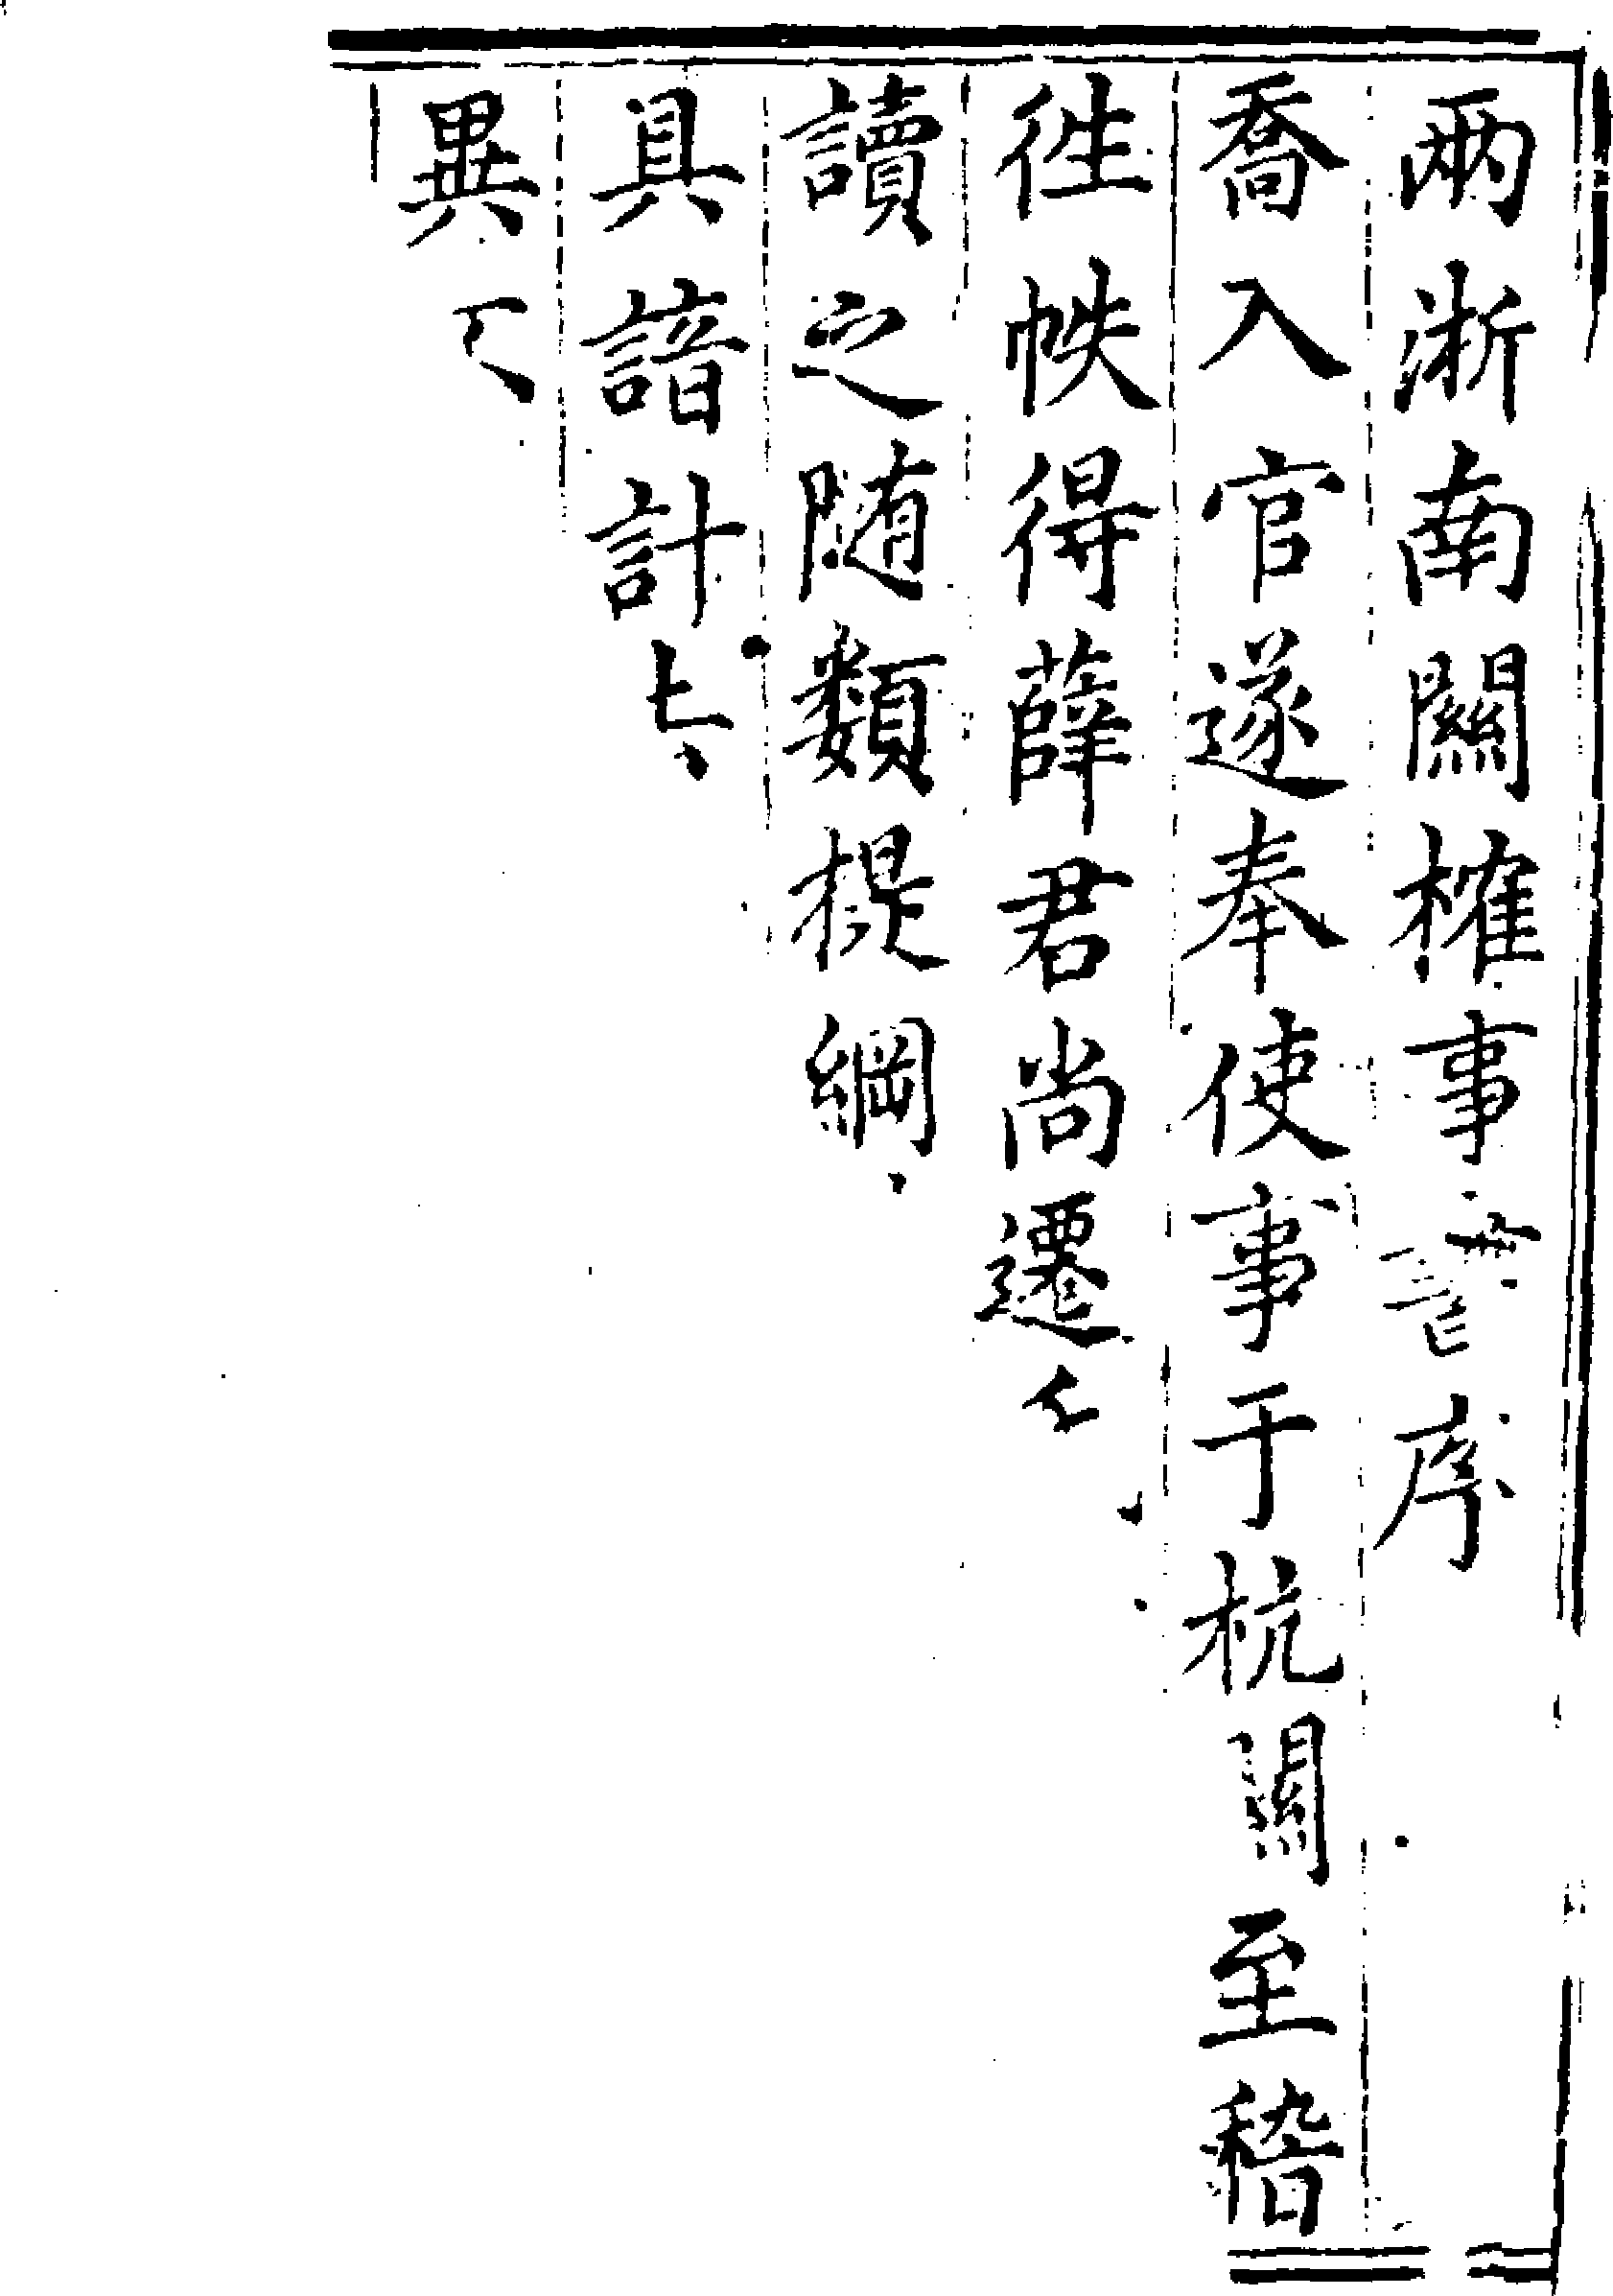 兩淛南關榷事書序
喬入官遂奉使事于杭關至稽
徃帙得薛君尚遷
讀之随類提綱
具諳計
異